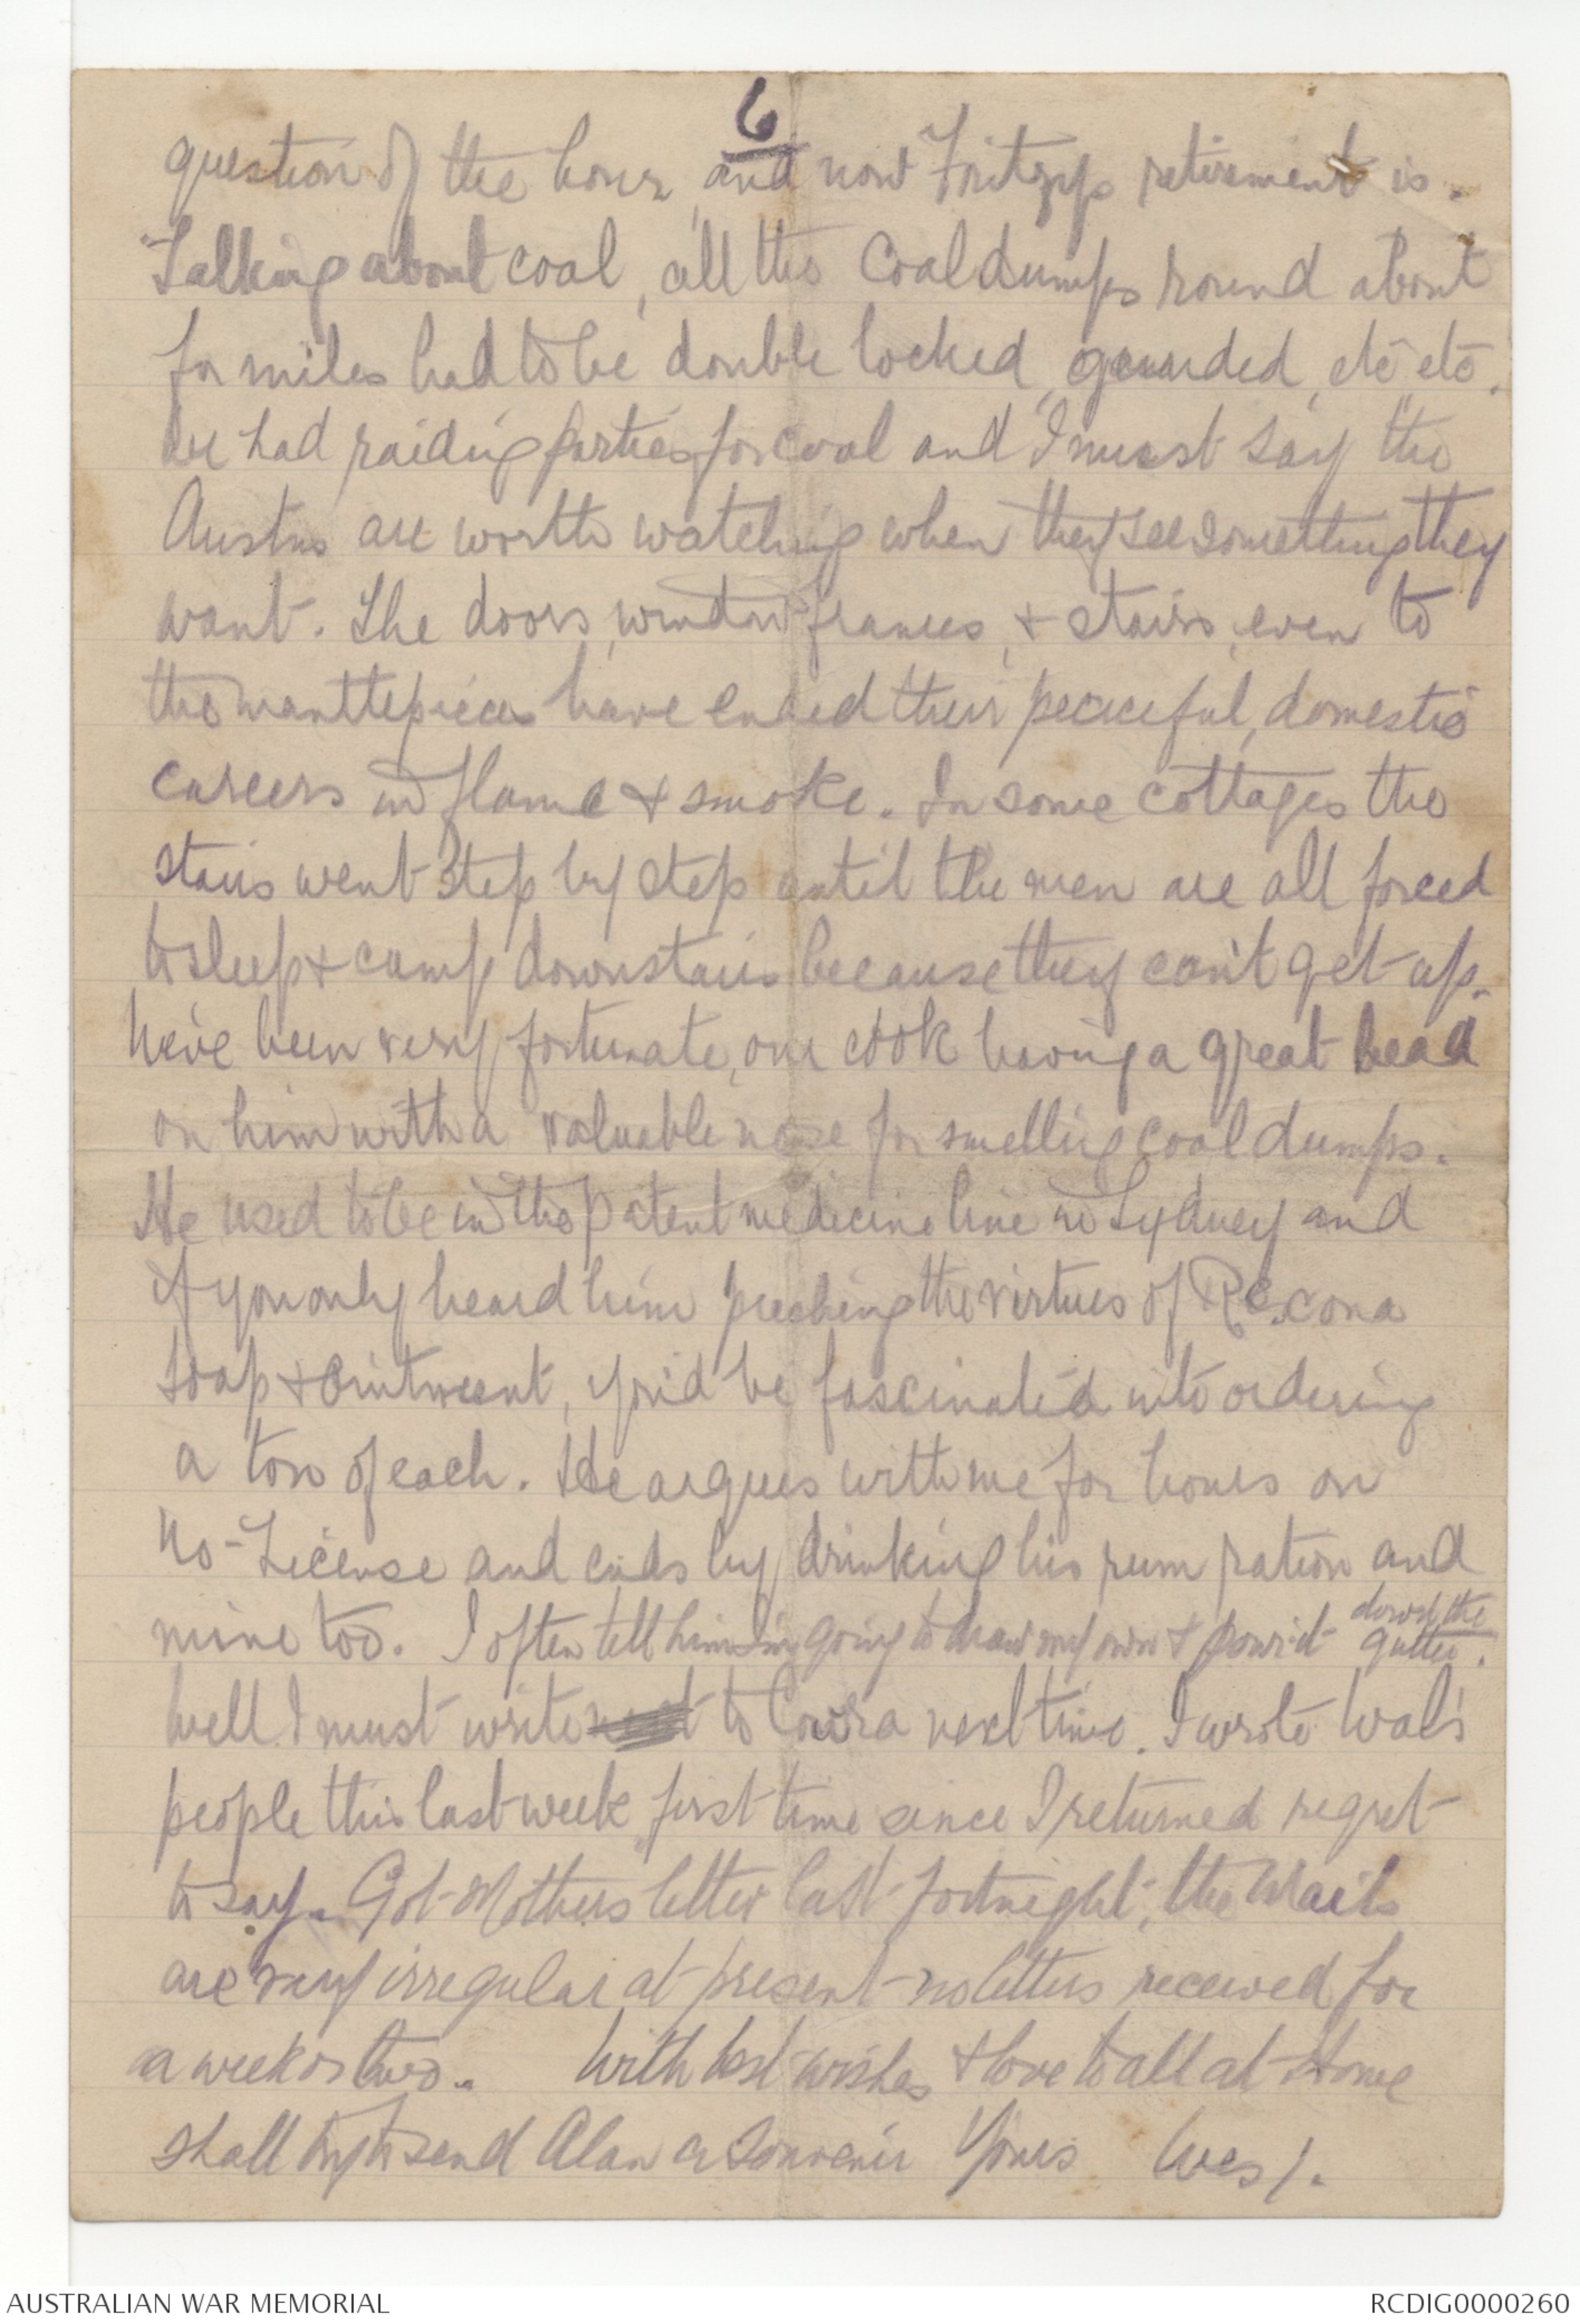 6
question of the hour, and now Fritzy's retirement is.
Talking about coal, all the Coal dumps round about
for miles had to be double locked, guarded, etc etc.
We had raiding parties for coal and I must say the
Austns are worth watching when they see something they
want. The doors, window frames, & stairs, even to
the manttlepieces have ended their peaceful, domestic
careers in flame & smoke. In some cottages the
stairs went step by step until the men are all forced
to sleep & camp downstairs because they can't get up.
We've been very fortunate, our cook having a great head
on him with a valuable nose for smelling coal dumps.
He used to be in the patent medicine line in Sydney and
if you only heard him preching the virtues of Rexona
Soap & Ointment, you'd be fascinated into ordering
a ton of each. He argues with me for hours on
No-License and ends by drinking his rum ration and
mine too. I often tell him I'm going to draw my own & pour it down the
gutter.
Well I must write to Cowra next time. I wrote Wal's
people this last week, first time since I returned regret
to say. Got Mothers letter last fortnight, the Mails
are very irregular at present - no letters received for
a week or two. With best wishes & love to all at Home
shall try to send Alan a Souvenir Yours Wes/.
AUSTRALIAN WAR MEMORIAL
RCDIG0000260